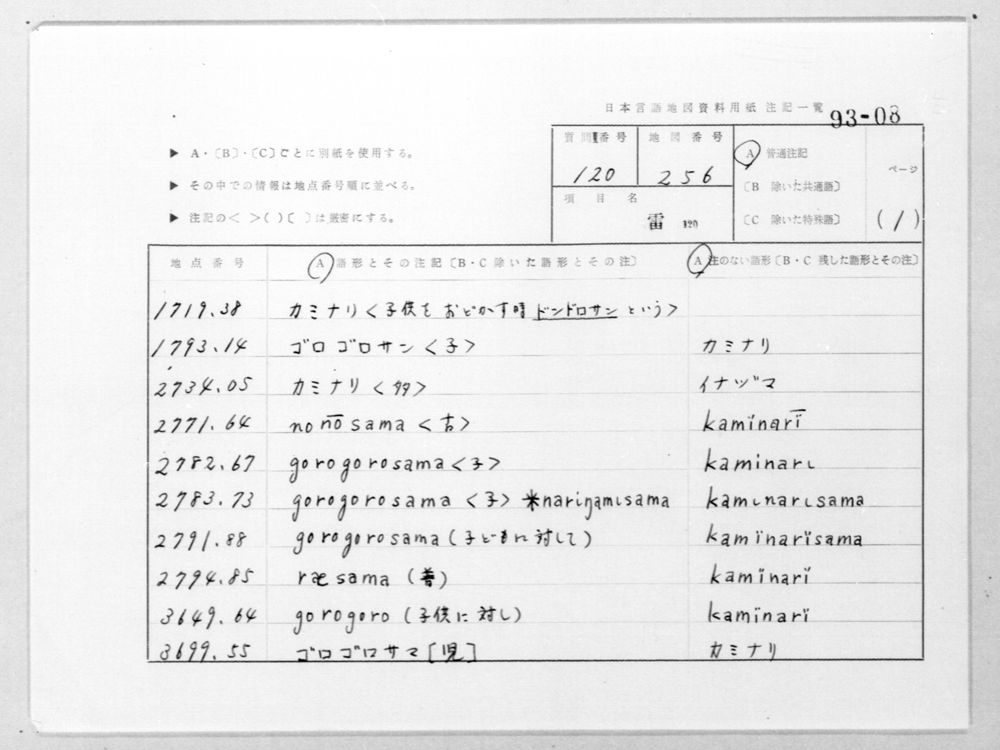 日本言語地図資料用紙 注記一覧
93-08
▶ A・〔B〕・〔C〕ごとに別紙を使用する。
▶ その中での情報は地点番号順に並べる。
▶ 注記の< >( )〔 〕は厳密にする。
質問番号 地図番号
120 256
項目名
雷 120
A 普通注記
〔B 除いた共通語〕
〔C 除いた特殊語〕
ページ
(1)
地点番号 A 語形とその注記〔B・C 除いた語形とその注〕 A 注のない語形〔B・C 残した語形とその注〕
1719.38 カミナリ<子供を おどかす時 ドンドロサン という>
1793.14 ゴロゴロサン<子> カミナリ
2734.05 カミナリ<多> イナヅマ
2771.64 nonōsama <古> kaminarï̄
2782.67 gorogorosama<子> kaminarɩ
2783.73 gorogorosama <子> *nariŋamɩsama kamɩnarɩsama
2791.88 gorogorosama(子どもに対して) kamïnarïsama
2794.85 ræsama (昔) kamïnarï
3649.64 gorogoro (子供に対し) kamïnarï
3699.55 ゴロゴロサマ[児] カミナリ